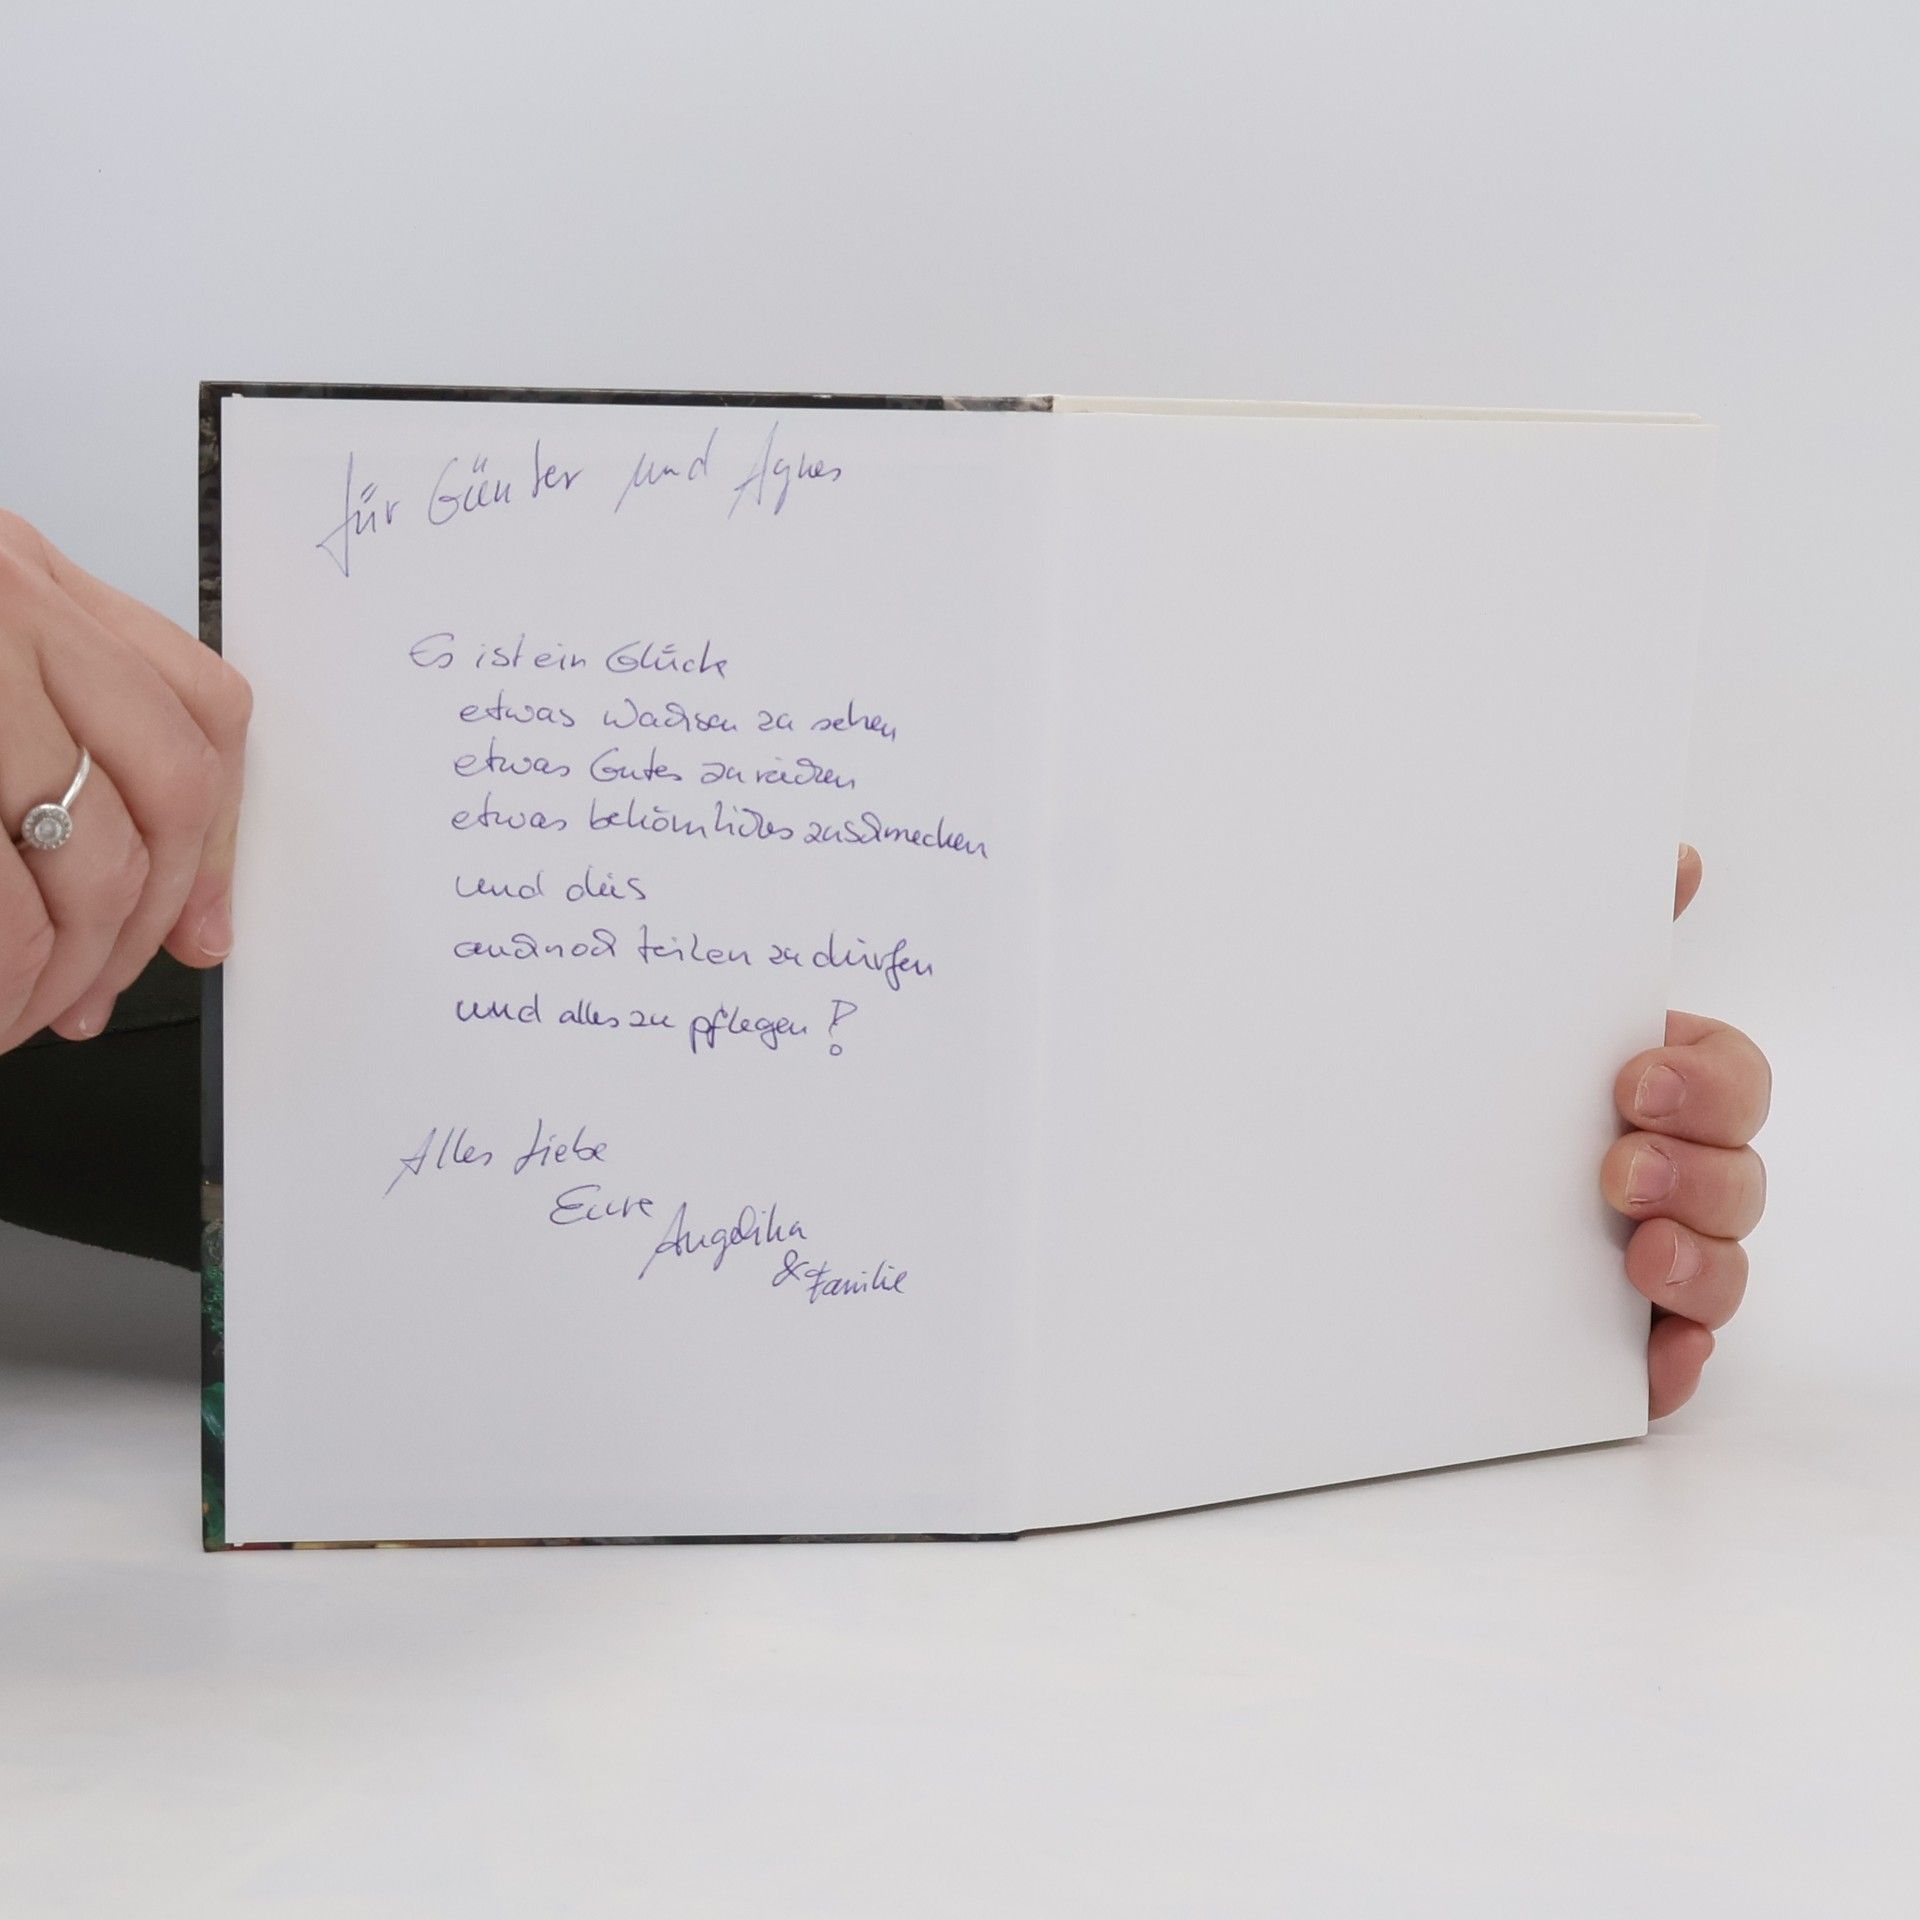 für Günter und Agnes
Es ist ein Glück
etwas wachsen zu sehen
etwas Gutes zu riechen
etwas bekömliches zu schmecken
und dies
auch noch teilen zu dürfen
und alles zu pflegen!
Alles Liebe
Eure
Angelika
& Familie